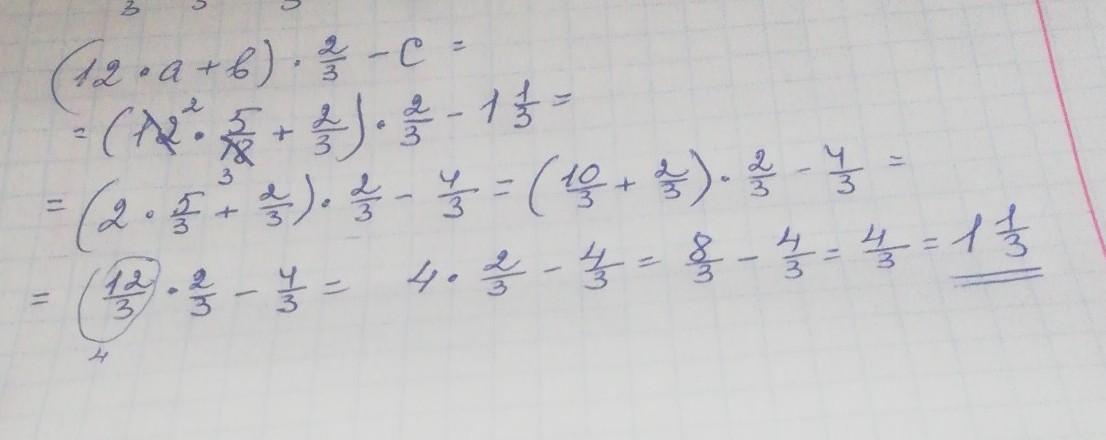 3 3 3
(12 · a + b) · 2/3 - c =
= (12 2 · 5/18 3 + 2/3) · 2/3 - 1 1/3 =
= (2 · 5/3 + 2/3) · 2/3 - 4/3 = (10/3 + 2/3) · 2/3 - 4/3 =
= (12/3 · 2/3 - 4/3 = 4 · 2/3 - 4/3 = 8/3 - 4/3 = 4/3 = 1 1/3
4